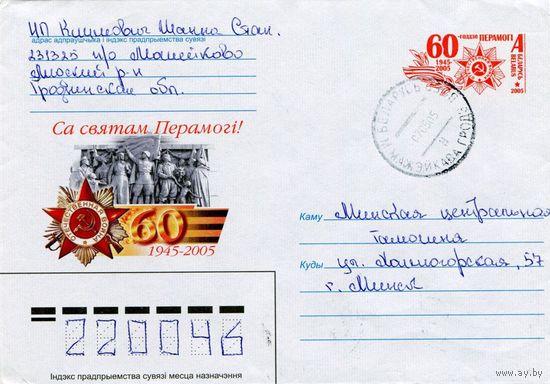 ИП Климович Жанна Стан.
адрас адпраўшчыка і індэкс прадпрыемства сувязі
231325 п/о Можейково
Лидский р-н
Гродненская обл.
60-годдзе ПЕРАМОГІ А
1945-2005
БЕЛАРУСЬ
BELARUS
2005
БЕЛАРУСЬ
МАЖЭЙКАВА
Са святам Перамогі!
ОТЕЧЕСТВЕННАЯ ВОЙНА
60
1945-2005
Каму Минская центральная
таможня
Куды ул. Холмогорская, 57
г. Минск
220046
Індэкс прадпрыемства сувязі месца назначэння
www.ay.by